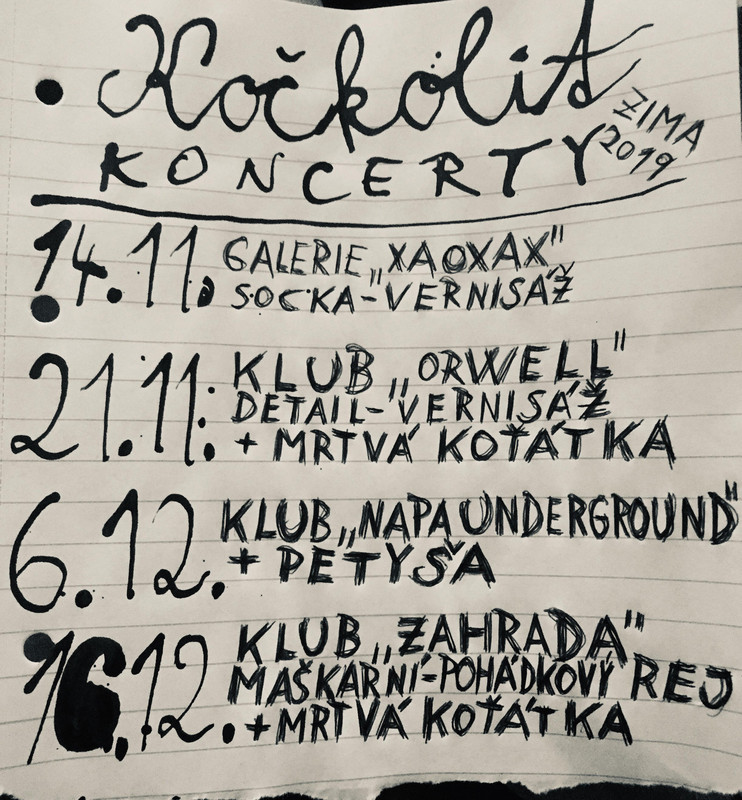 Kočkolit
KONCERTY
ZIMA
2019
14.11. GALERIE „XAOXAX"
SOCKA-VERNISÁŽ
21.11. KLUB „ORWELL"
DETAIL-VERNISÁŽ
+ MRTVÁ KOŤÁTKA
6.12. KLUB „NAPA UNDERGROUND"
+ PETYŠA
16.12. KLUB „ZAHRADA"
MAŠKARNÍ-POHÁDKOVÝ REJ
+ MRTVÁ KOŤÁTKA